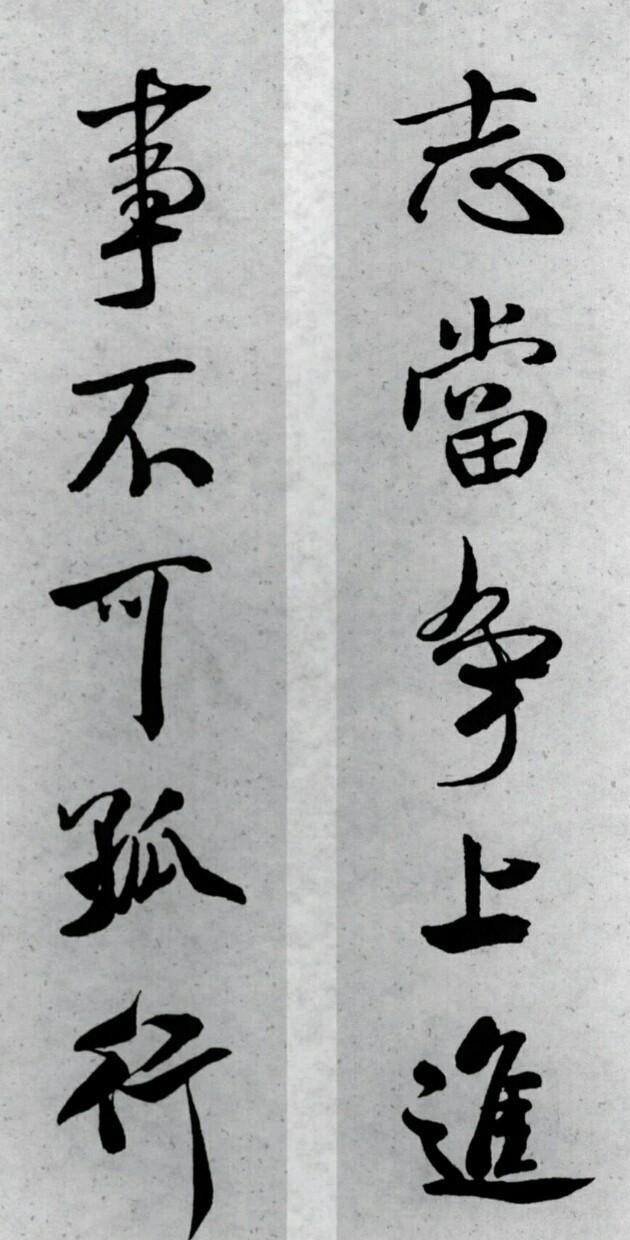 志當争上進
事不可孤行